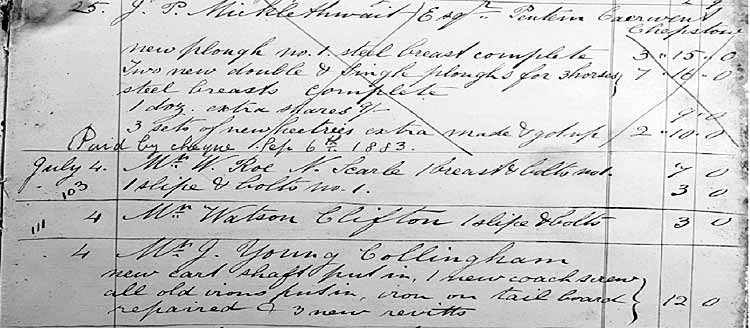 25. J. P. Micklethwait Esqr. Pentern Caerwent
Chepstow
new plough no. 1 steel breast complete 3 " 15 " 0
Two new double & Single ploughs for 3 horses } 7 " 16 " 0
steel breasts complete
1 doz. extra shares 9/ 9 " 0
3 sets of new heetrees extra made & got up 2 " 10 " 0
Paid by cheque Sep 6th 1883.
July 4. Mr. W. Roe N. Scarle 1 breast & bolts no 1. 7 0
103 1 slipe & bolts no. 1. 3 0
111 4 Mr. Watson Clifton 1 slipe & bolts 3 0
4 Mr. J. Young Collingham
new cart shaft put in, 1 new coach screw
all old irons put in, iron on tail board } 12 0
repaired & 3 new revitts